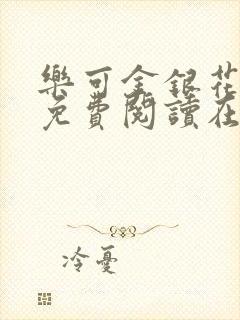 樂可金銀花
免費閱讀在
冷憂